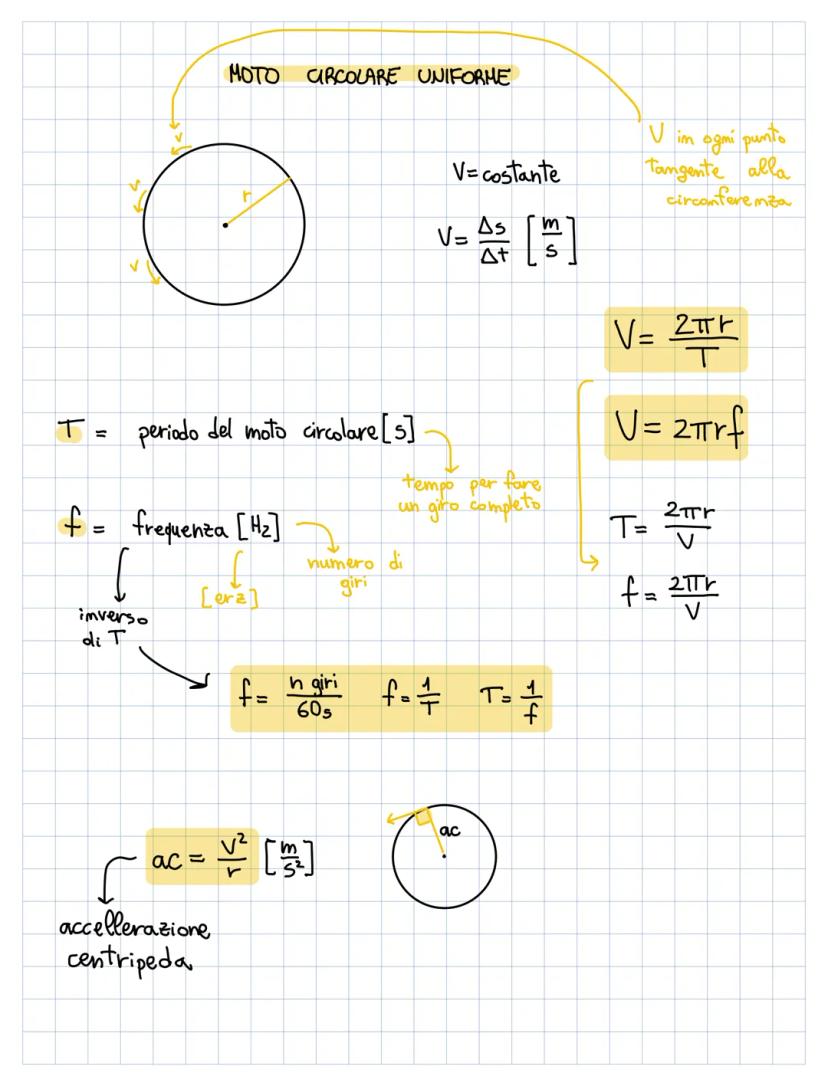 MOTO CIRCOLARE UNIFORME
V in ogni punto
tangente alla
circonferenza
v
v
v
r
V= costante
V= Δs/Δt [m/s]
V= 2πr/T
V= 2πrf
T= 2πr/V
f= 2πr/V
T = periodo del moto circolare [s]
tempo per fare
un giro completo
f = frequenza [Hz]
numero di
giri
[erz]
inverso
di T
f= n giri/60s f=1/T T=1/f
ac = v²/r [m/s²]
ac
accellerazione
centripeda